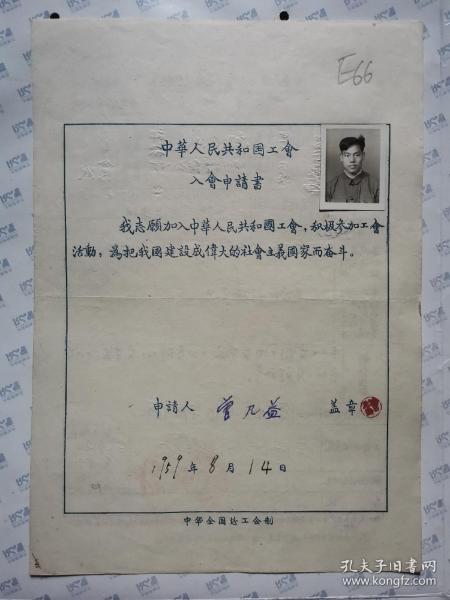 E66
中華人民共和国工會
入會申請書
我志願加入中華人民共和國工會，积极参加工會
活動，為把我國建設成偉大的社會主義國家而奋斗。
申請人 曾凡益 盖章
1959年8月14日
中华全国总工会制
孔夫子旧书网
www.kongfz.com